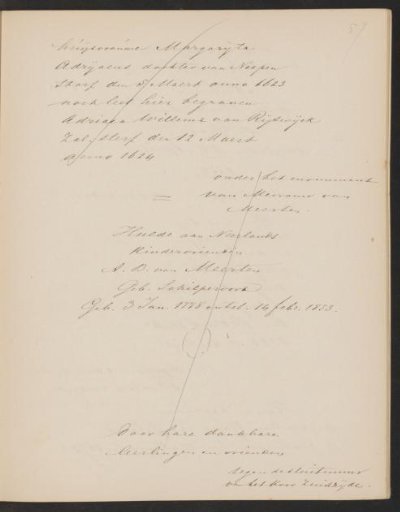 huijsvrouwe Margarijta
Adrijaens dochter van Noopen
starf den 8 Maert anno 1623
noch leet hier begraven
Adriaen Willems van Rijswijck
Zal. sterf den 12 Maert
anno 1624
onder het monument
van Mevrouw van
Meerten.
Hulde aan Neerlands
Kindervriendin
A. B. van Meerten
Geb. Schilperoort
Geb. 3 Jan. 1778 overl. 14 febr. 1853.
Door hare dankbare
leerlingen en vrienden
tegen de sluitmuur
van het Koor Zuidzijde.